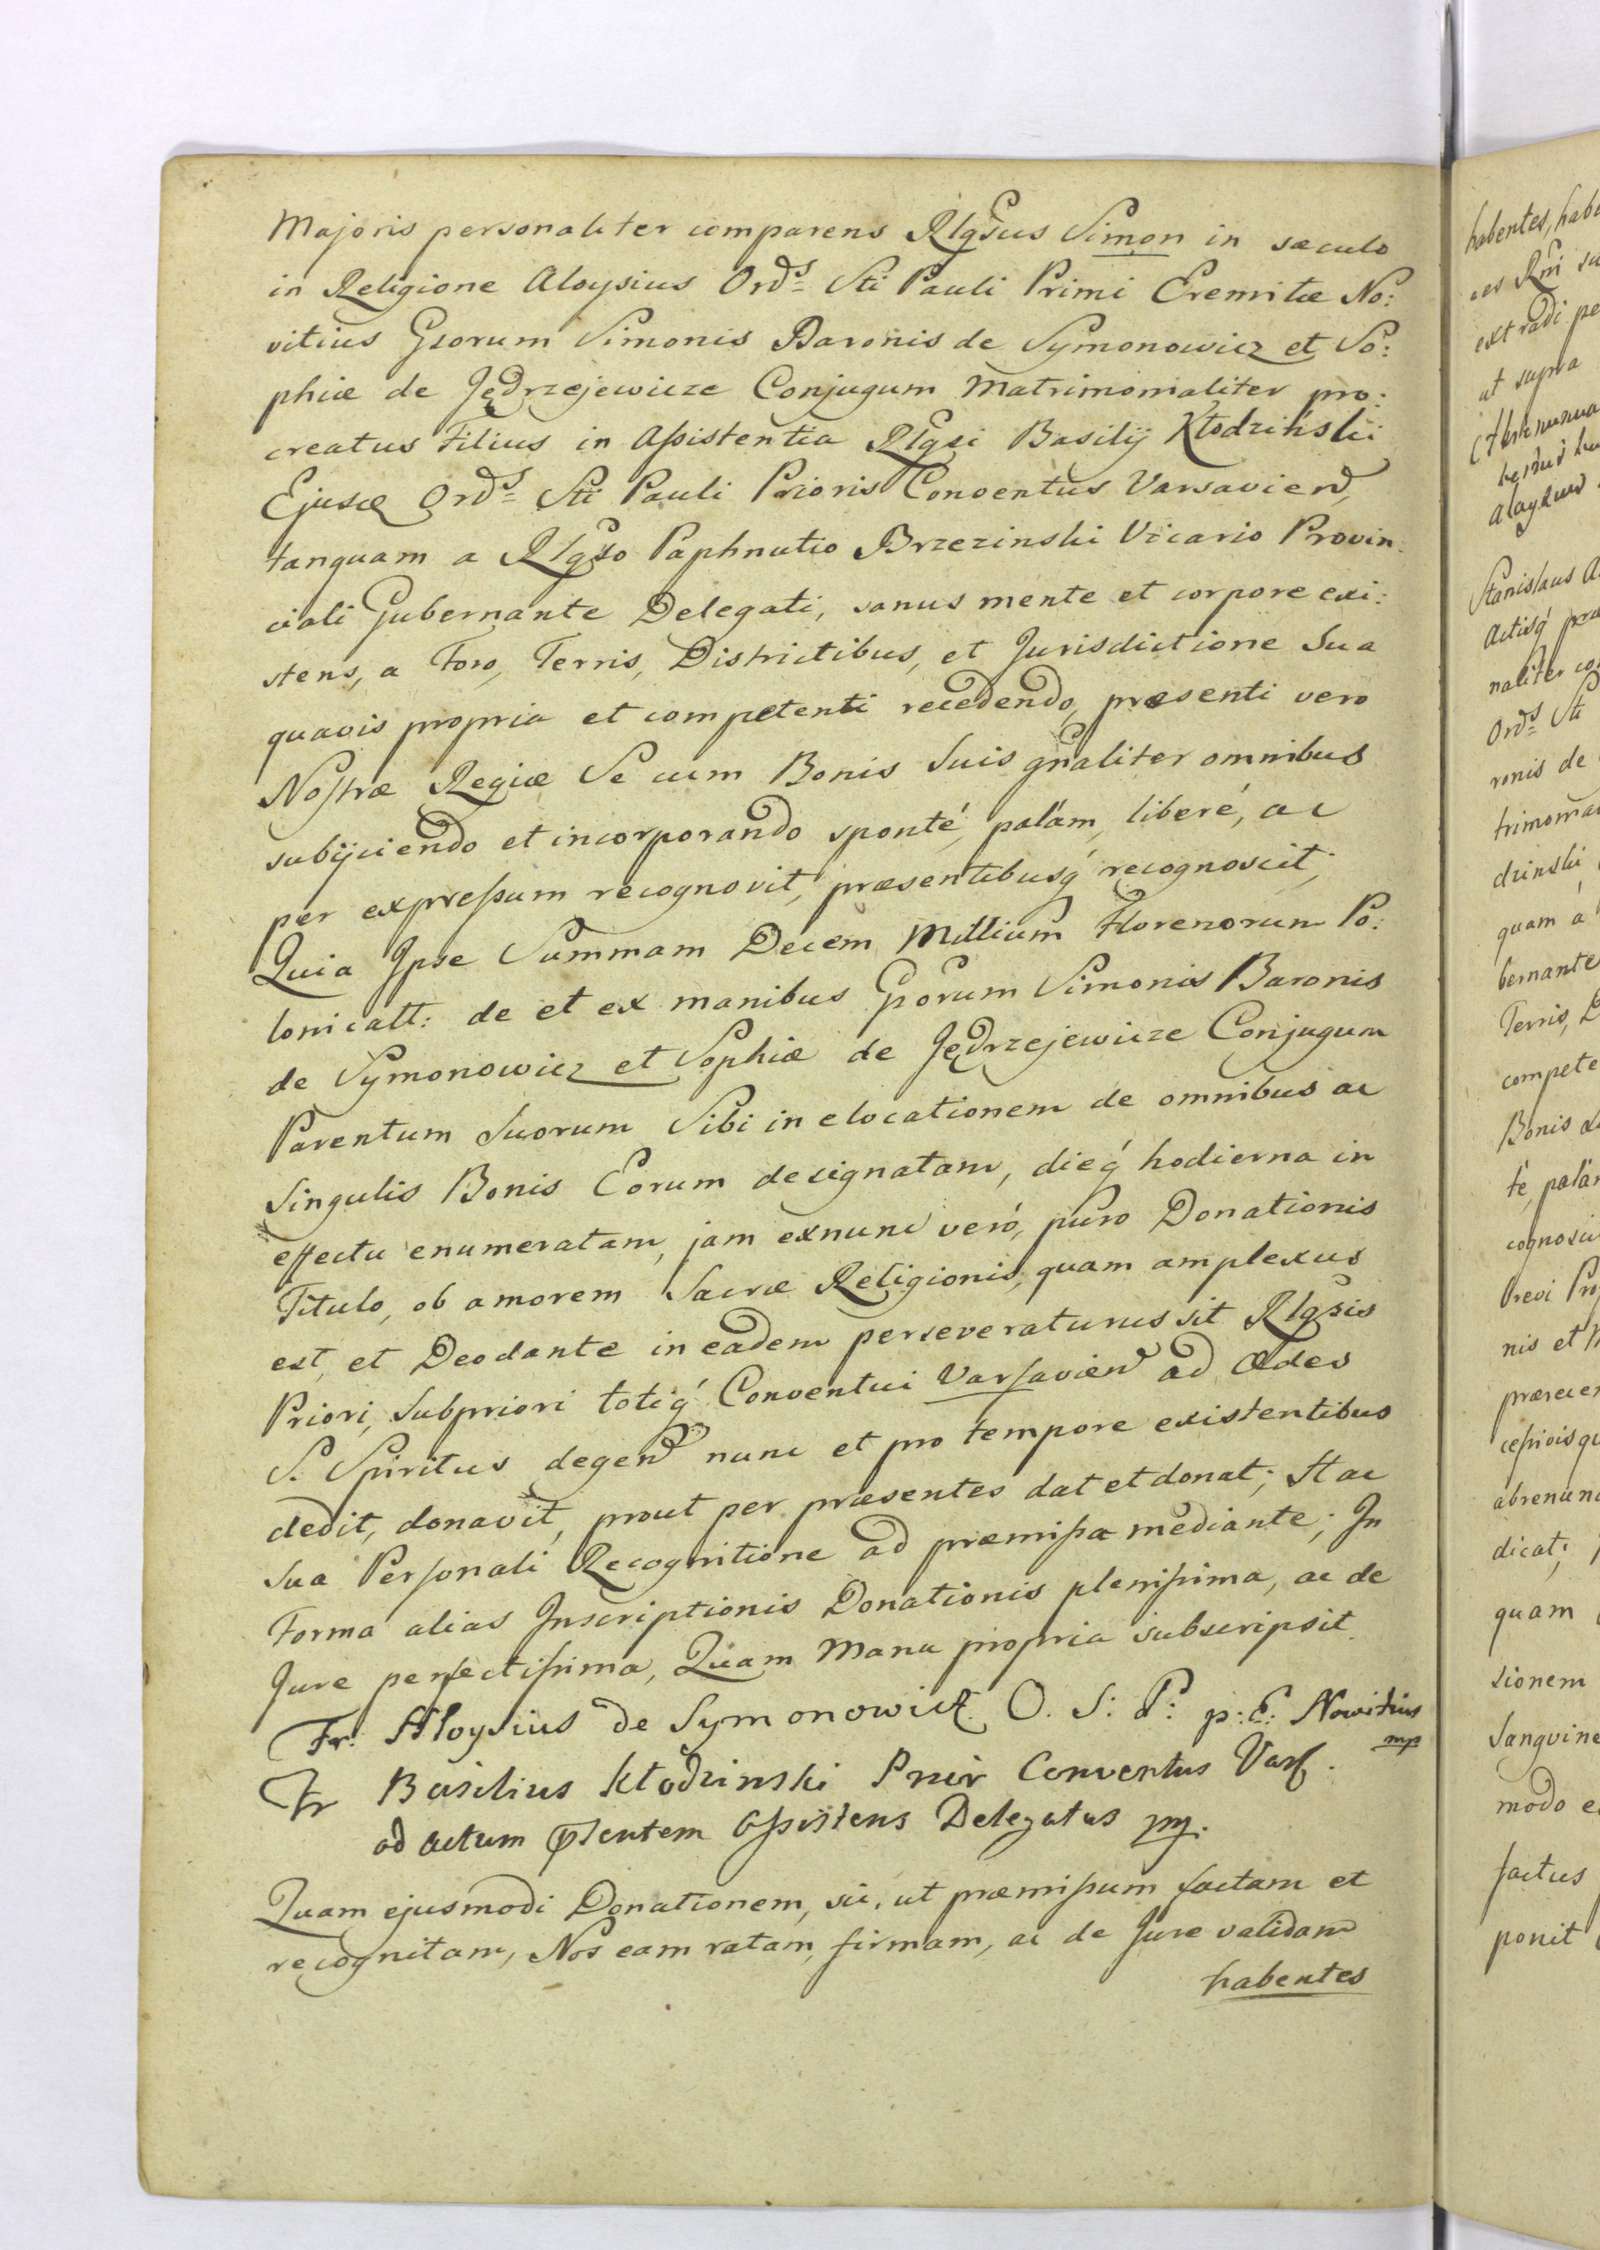 Majoris personaliter comparens Rlgsus Simon in sæculo
in Religione Aloysius Ordis Sti Pauli Primi Eremitæ No:
vitius Gsorum Simonis Baronis de Symonowicz et So:
phiæ de Jędrzejewicze Conjugum Matrimonialiter pro:
creatus Filius in Assistentia Rlgsi Basilij Kłodziński
Ejusdę Ordis Sti Pauli Prioris Conventus Varsavien̄,
tanquam a Rlgso Paphnutio Brzezinski Vicario Provin:
ciali Gubernante Delegati, sanus mente et corpore exi:
stens, a Foro, Terris, Districtibus, et Jurisdictione Sua
quavis propria et competenti recedendo, præsenti vero
Nostræ Regiæ Se cum Bonis Suis gn̄aliter omnibus
subijciendo et incorporando sponté, palám, liberé, ac
per expressum recognovit, præsentibusq́ recognoscit;
Quia Ipse Summam Decem Millium Florenorum Po:
lonicall: de et ex manibus Gsorum Simonis Baronis
de Symonowicz et Sophiæ de Jędrzejewicze Conjugum
Parentum Suorum Sibi in elocationem de omnibus ac
Singulis Bonis Eorum designatam, dieq́ hodierna in
effectu enumeratam, jam exnunc veró, puro Donationis
Titulo, ob amorem Sacræ Religionis, quam amplexus
est, et Deodante in eadem perseveraturus sit Rlgsis
Priori, Subpriori totiq́ Conventui Varsavien̄ ad Ædes
S. Spiritus degen̄ nunc et pro tempore existentibus
dedit, donavit, prout per præsentes dat et donat; Hac
Sua Personali Recognitione ad præmissa mediante; In
Forma alias Inscriptionis Donationis plenissima, ac de
Jure perfectissima, Quam Manu propria subscripsit.
Fr: Aloysius de Symonowicz O. S: P: p: E: Nowitius
mp
Fr Basilius Kłodzinski Prior Conventus Vars.
ad actum p̄sentem Assistens Delegatus mp.
Quam ejusmodi Donationem, sic, ut præmissum factam et
recognitam, Nos eam ratam, firmam, ac de Jure validam
habentes
habentes,
ut supra
Stanislaus
Actisq́
Ordis Sti
ronis de
quam á
bernante
Terris,
compete
Bonis
nis et
dicat;
quam
sionem
Sanguine
modo
factus
ponit